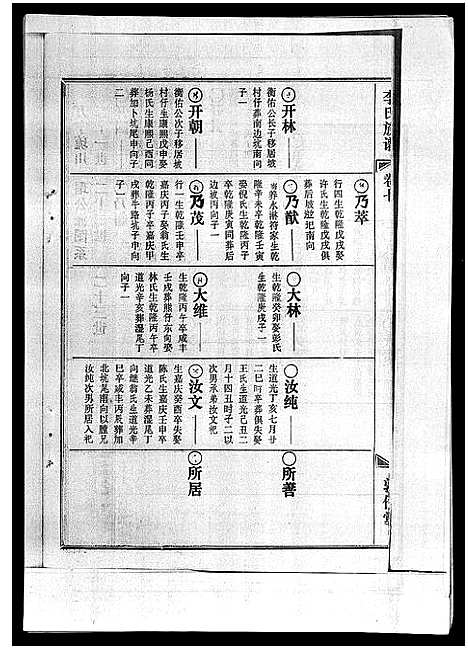 李氏族谱
卷七
开林
衡佑公长子移居坡
村仔葬南边坑南向
子一
开朝
衡佑公次子移居坡
村仔生康熙戊申娶
杨氏生康熙己酉同
葬加卜坑尾申向子
二
乃萃
行四生乾隆戊戌娶
许氏生乾隆戊戌俱
葬后坡逆圯南向
乃猷
出养水淋符家生乾
隆辛未卒乾隆壬寅
娶倪氏生乾隆丙子
卒乾隆庚寅同葬后
边坡丙向子一
乃茂
行一生乾隆壬申卒
嘉庆丙子娶翁氏生
乾隆丙子卒嘉庆甲
戌葬牛路坑子申向
子一
大林
生乾隆癸卯娶彭氏
生乾隆庚戌子一
大维
生乾隆丙午卒咸丰
壬戌葬熊仔东向娶
林氏生乾隆丙午卒
道光辛亥葬湿尾丁
向子一
汝纯
生道光丁亥七月廿
二巳时卒葬俱失娶
王氏生道光己丑二
月十四丑时子二以
次男承弟汝文祀
汝文
生嘉庆癸酉卒失娶
陈氏生嘉庆壬申卒
道光乙未葬湿尾丁
向继翁氏生道光辛
巳卒咸丰丙辰葬加
北坑尾南向以胞兄
汝纯次男所居入祀
所善
所居